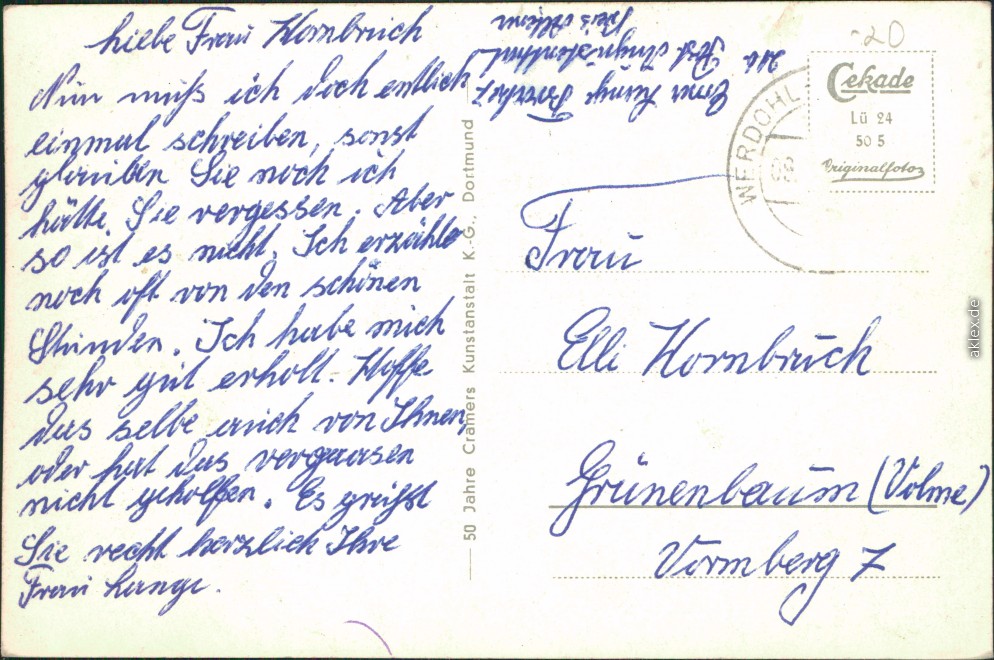 liebe Frau Hornbruch
Nun muß ich doch entlich
einmal schreiben, sonst
glauben Sie noch ich
hätte Sie vergessen. Aber
so ist es nicht. Ich erzähle
noch oft von den schönen
Stunden. Ich habe mich
sehr gut erholt. Hoffe
das selbe auch von Ihnen,
oder hat das vergaasen
nicht geholfen. Es grüßt
Sie recht herzlich Ihre
Frau Lange.
50 Jahre Cramers Kunstanstalt K.-G., Dortmund
Erna Lange
Post
WERDOHL
08
-20
Cekade
Lü 24
50 5
Originalfotos
Frau
Elli Hornbruch
Grünenbaum (Volme)
Vormberg 7
aklex.de